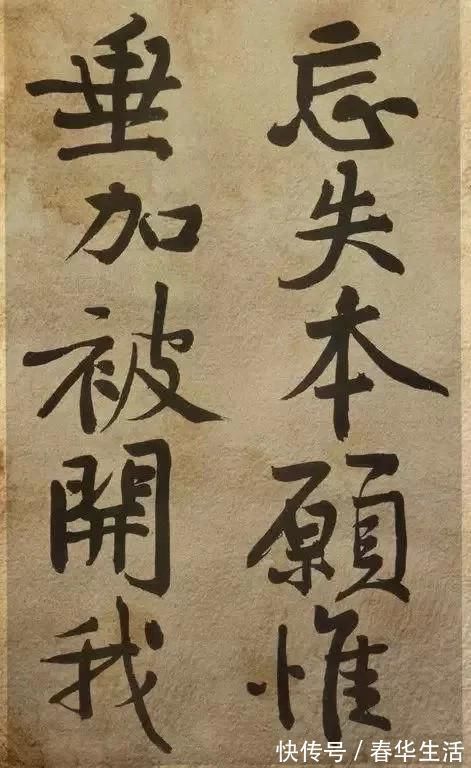 忘失本願惟
垂加被開我
快传号 / 春华生活